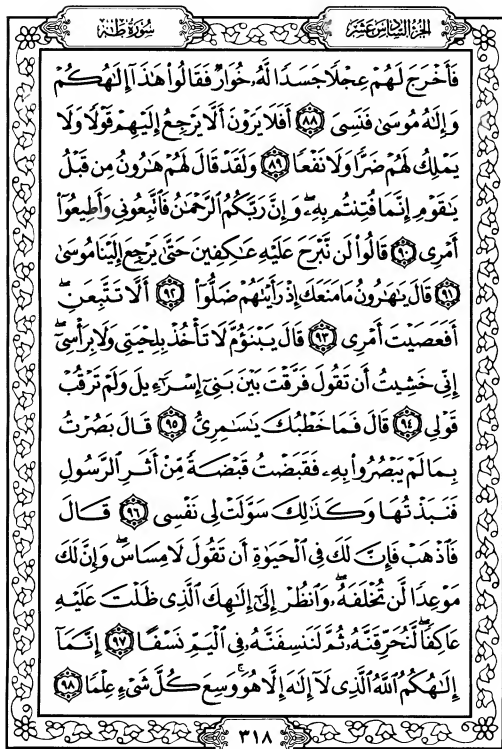 الجزء السادس عشر
سورة طه
فَأَخْرَجَ لَهُمْ عِجْلًا جَسَدًا لَّهُۥ خُوَارٌ فَقَالُوا۟ هَٰذَآ إِلَٰهُكُمْ
وَإِلَٰهُ مُوسَىٰ فَنَسِىَ ٨٨ أَفَلَا يَرَوْنَ أَلَّا يَرْجِعُ إِلَيْهِمْ قَوْلًا وَلَا
يَمْلِكُ لَهُمْ ضَرًّا وَلَا نَفْعًا ٨٩ وَلَقَدْ قَالَ لَهُمْ هَٰرُونُ مِن قَبْلُ
يَٰقَوْمِ إِنَّمَا فُتِنتُم بِهِۦ وَإِنَّ رَبَّكُمُ ٱلرَّحْمَٰنُ فَٱتَّبِعُونِى وَأَطِيعُوٓا۟
أَمْرِى ٩٠ قَالُوا۟ لَن نَّبْرَحَ عَلَيْهِ عَٰكِفِينَ حَتَّىٰ يَرْجِعَ إِلَيْنَا مُوسَىٰ
٩١ قَالَ يَٰهَٰرُونُ مَا مَنَعَكَ إِذْ رَأَيْتَهُمْ ضَلُّوٓا۟ ٩٢ أَلَّا تَتَّبِعَنِ
أَفَعَصَيْتَ أَمْرِى ٩٣ قَالَ يَبْنَؤُمَّ لَا تَأْخُذْ بِلِحْيَتِى وَلَا بِرَأْسِىٓ
إِنِّى خَشِيتُ أَن تَقُولَ فَرَّقْتَ بَيْنَ بَنِىٓ إِسْرَٰٓءِيلَ وَلَمْ تَرْقُبْ
قَوْلِى ٩٤ قَالَ فَمَا خَطْبُكَ يَٰسَٰمِرِىُّ ٩٥ قَالَ بَصُرْتُ
بِمَا لَمْ يَبْصُرُوا۟ بِهِۦ فَقَبَضْتُ قَبْضَةً مِّنْ أَثَرِ ٱلرَّسُولِ
فَنَبَذْتُهَا وَكَذَٰلِكَ سَوَّلَتْ لِى نَفْسِى ٩٦ قَالَ
فَٱذْهَبْ فَإِنَّ لَكَ فِى ٱلْحَيَوٰةِ أَن تَقُولَ لَا مِسَاسَ وَإِنَّ لَكَ
مَوْعِدًا لَّن تُخْلَفَهُۥ وَٱنظُرْ إِلَىٰٓ إِلَٰهِكَ ٱلَّذِى ظَلْتَ عَلَيْهِ
عَاكِفًا لَّنُحَرِّقَنَّهُۥ ثُمَّ لَنَنسِفَنَّهُۥ فِى ٱلْيَمِّ نَسْفًا ٩٧ إِنَّمَآ
إِلَٰهُكُمُ ٱللَّهُ ٱلَّذِى لَآ إِلَٰهَ إِلَّا هُوَ وَسِعَ كُلَّ شَىْءٍ عِلْمًا ٩٨
٣١٨